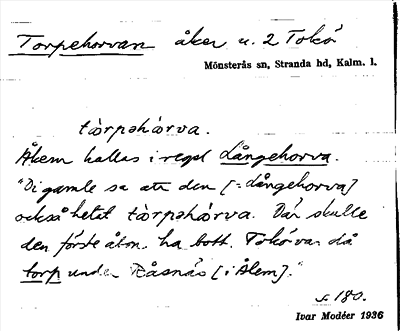 Torpehorvan åker u. 2 Tokö
Mönsterås sn, Stranda hd, Kalm. l.
tòrpəhòrva.
Åkern kallas i regel Långehorva.
"Di gamle sa att den [= Långehorva]
också hetat tòrpəhòrva. Där skulle
den förste åbon ha bott. Tokö var då
torp under Råsnäs [i Ålem]."
s. 180.
Ivar Modéer 1936